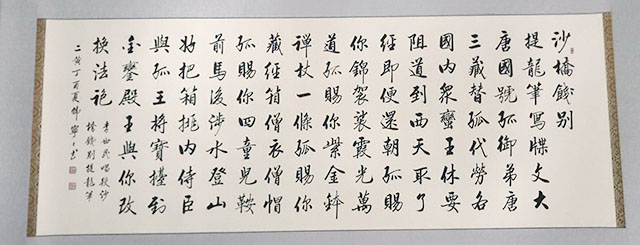 沙橋餞别
提龍筆寫牒文大
唐國號孤御弟唐
三藏替孤代勞名
國内眾蠻王休要
阻道到西天取了
經即便還朝孤賜
你錦袈裟霞光萬
道孤賜你紫金鉢
禅杖一條孤賜你
藏經箱僧衣僧帽
孤賜你四童兒鞍
前馬後涉水登山
好把箱挑内侍臣
與孤王將寶擡到
金鑾殿王與你改
換法袍
李世民唱段沙
橋餞别提龍筆
二黄丁酉夏